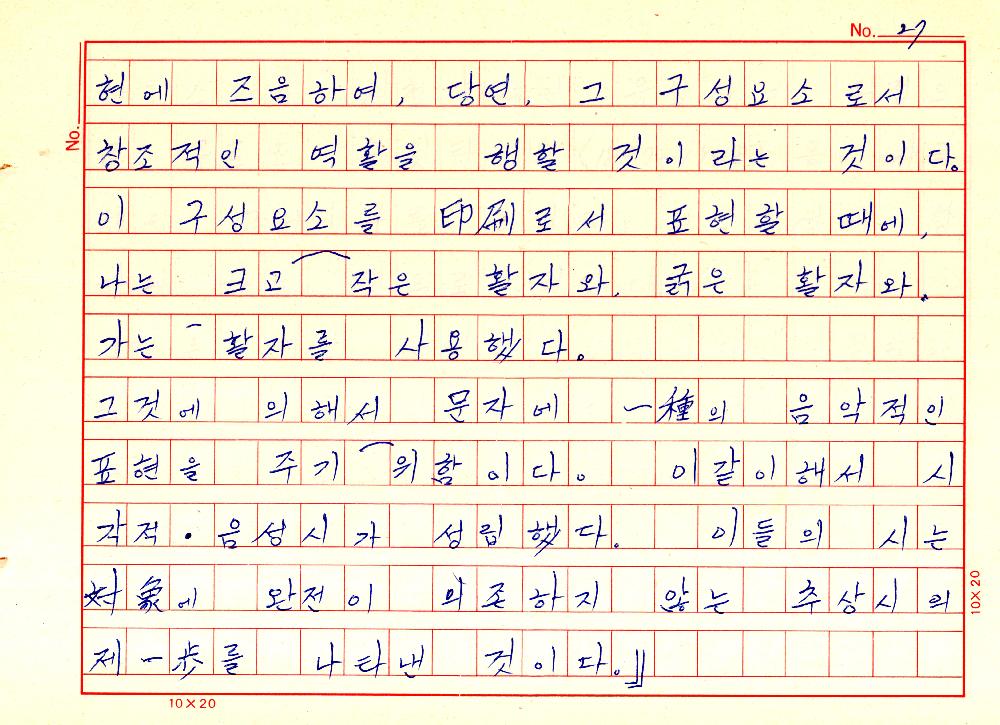 No. 27
No.
현에 즈음하여, 당연, 그 구성요소로서
창조적인 역활을 행할 것이라는 것이다.
이 구성요소를 印刷로서 표현할 때에,
나는 크고 작은 활자와, 굵은 활자와,
가는 활자를 사용했다.
그것에 의해서 문자에 一種의 음악적인
표현을 주기 위함이다. 이같이해서 시
각적·음성시가 성립했다. 이들의 시는
対象에 완전이 의존하지 않는 추상시의
제一歩를 나타낸 것이다.』
10×20
10×20